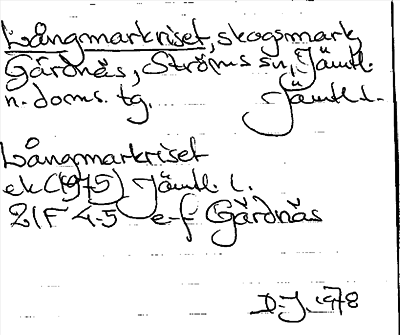 Långmarkriset, skogsmark,
Gärdnäs, Ströms sn, Jämtl.
n. doms. tg. Jämtl. l.
Långmarkriset
ek (1975) Jämtl. l.
21F 4-5 e-f Gärdnäs
D.J. 1978